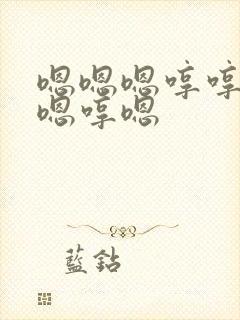 嗯嗯嗯哼哼
嗯哼嗯
藍鈷